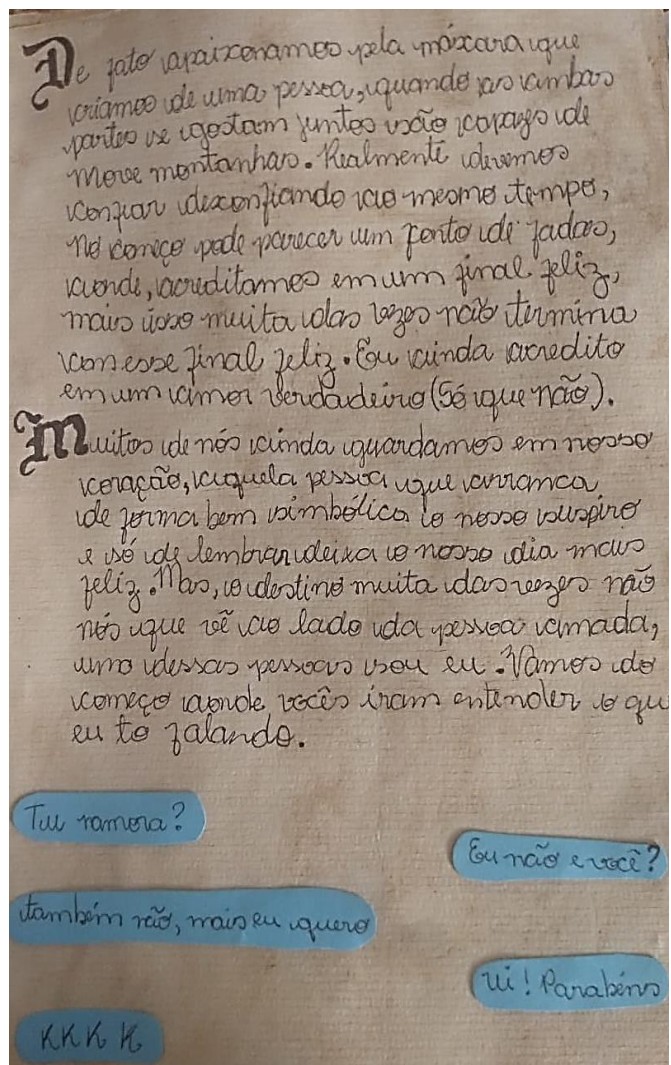 De fato apaixonamos pela máxcara que
criamos de uma pessoa, quando as ambas
partes se gostam juntos são capazes de
move montanhas. Realmente devemos
confiar desconfiando ao mesmo tempo,
no começo pode parecer um conto de fadas,
aonde, acreditamos em um final feliz,
mais isso muita das vezes não termina
con esse final feliz. Eu ainda acredito
em um amor verdadeiro (Só que não).
Muitos de nós ainda guardamos em nosso
coração, aquela pessoa que arranca
de forma bem simbólica o nosso suspiro
e só de lembrar deixa o nosso dia mais
feliz. Mas, o destino muita das vezes não
nós que vê ao lado da pessoa amada,
uma dessas pessoas sou eu. Vamos do
começo aonde vocês iram entender o qu
eu to falando.
Tu namora?
Eu não e você?
também não, mais eu quero
Ui! Parabéns
KKKK